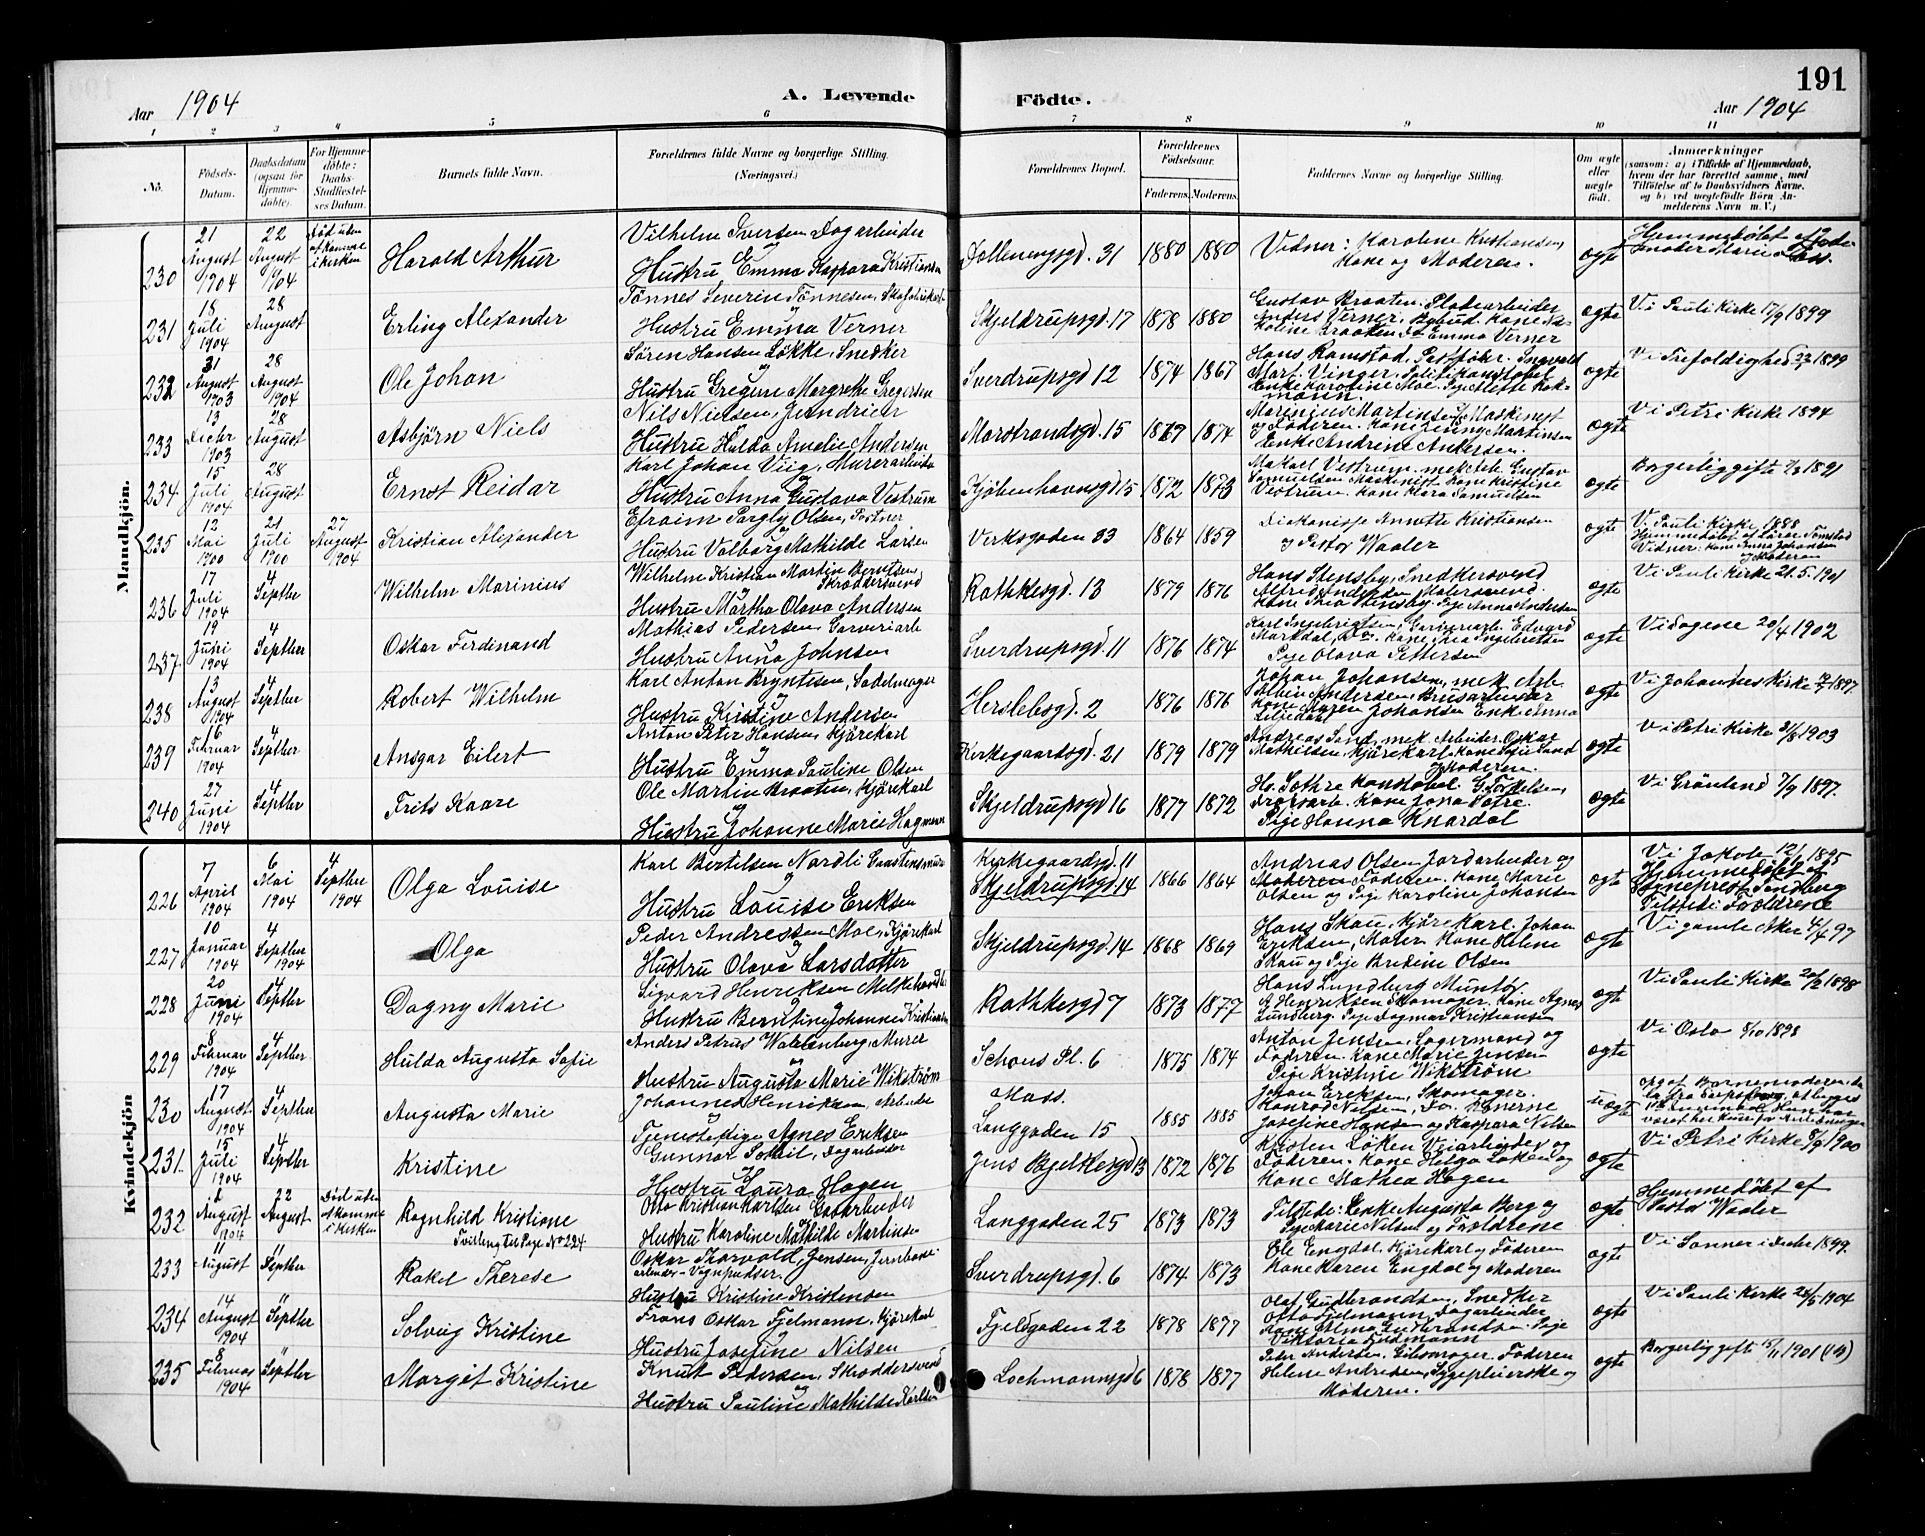 191
Aar 1904
A. Levende Födte.
Aar 1904
1 2 3 4 5 6 7 8 9 10 11
No.
Födsels-Datum.
Daabsdatum (ogsaa for Hjemmedöbte).
For Hjemmedöbte: Daabs-Stadfæstelses Datum.
Barnets fulde Navn.
Forældrenes fulde Navne og borgerlige Stilling.
(Næringsvei.)
Forældrenes Bopæl.
Forældrenes Födselsaar.
Faderens. Moderens.
Faddernes Navne og borgerlige Stilling.
Om ægte eller uægte födt.
Anmærkninger
(saasom: a) i Tilfælde af Hjemmedaab, hvem der har forrettet samme, med Tilföielse af to Daabsvidners Navne, og b) ved uægtefödte Börn Anmelderens Navn m. V.)
Mandkjön.
230 21 August 1904 22 August 1904 Död uden at komme i kirken Harald Arthur Vilhelm Iversen Dagarbeider og Hustru Emma Kaspara Kristiansen 31 1880 1880 Vidner: Karoline Kristiansen, Kone og Moderen. ægte Hjemmedöbt af
231 18 Juli 1904 28 August Erling Alexander Tönnes Severin Tönnesen, Hustru Emma Verner Skjeldrupsgd. 17 1878 1880 Gustav Braaten. Anders Verner, Emma Verner ægte Vi Pauli Kirke 17/9 1899
232 31 August 1903 28 August 1904 Ole Johan Sören Hansen Lökke, Snedker og Hustru Gregine Margrethe Gregersen Sverdrupsgd 12 1874 1867 Hans Ramstad. Ingvald Mart. Vinger. Enke Karoline Moe. ægte Vi Trefoldighed 1899
233 13 Decbr 1903 28 August Asbjörn Niels Nils Nielsen, Hustru Hulda Amelie Andersen Marstrandsgd. 15 1879 1874 Marinius Martinsen, Maskinist og Faderen. Enke Andrine Andersen. ægte Vi Petri Kirke 1894
234 15 Juli 1904 28 August Ernst Reidar Karl Johan Viig, Murerarbeider og Hustru Anna Gustava Vestrum Kjöbenhavnsgd 15 1872 1873 Gustav Samuelsen Maskinist Kone Kristine Vestrum. Kone Klara Samuelsen ægte Borgerlig gift 1891
235 12 Mai 1900 21 Juli 1900 27 August 1904 Kristian Alexander Efraim Olsen, og Hustru Valborg Mathilde Larsen Verksgaden 33 1864 1859 Diakonisse Annette Kristiansen og Pastor Waaler ægte Vi Pauli Kirke 1888 Hjemmedöbt af Lærer Vidner: Kone Anna Johansen og Moderen
236 17 Juli 1904 4 Septber Wilhelm Marinius Wilhelm Kristian Martin Berntsen Skræddersvend og Hustru Martha Olava Andersen Rathkesgd. 13 1879 1876 Hans Stensby, Snedkersvend Alfred Andersen Malersvend. Kone Thea Stensby. Pige Anna Andersen ægte Vi Pauli Kirke 21.5.1901
237 19 Juni 1904 4 Septber Oskar Ferdinand Mathias Pedersen Garveriarb. Hustru Anna Johnsen Sverdrupsgd. 11 1876 1874 Karl Ingebrigtsen, Garveriarb. Edvard Pige Olava Pettersen ægte Vi Sagene 20/4 1902
238 13 August 1904 4 Septber Robert Wilhelm Karl Anton Bryntesen, Sadelmager og Hustru Kristine Andersen Herslebsgd. 2 1876 1876 Johan Johansen, mek. Arb. Albin Andersen, Kone Maren Johansen Enke Anna ægte Vi Johannes Kirke 1897.
239 16 Februar 1904 4 Septber Ansgar Eilert Anton Peter Hansen, Kjörekarl og Hustru Emma Pauline Olsen Kirkegaardsgd. 21 1879 1879 Andreas Sand, mek. Arbeider. Oskar Mathisen, Kjörekarl. og Moderen. ægte Vi Petri Kirke 31/8 1903
240 27 Juni 1904 4 Septber Frits Kaare Ole Martin Braaten, Kjörekarl og Hustru Johanne Marie Hagmann Skjeldrupsgd 16 1877 1872 Pige Hanna Knardal ægte Vi Grönland 7/9 1897.
Kvindekjön
226 7 April 1904 6 Mai 1904 4 Septber 1904 Olga Louise Karl Bertelsen Nordli og Hustru Louise Eriksen Kirkegaardsgd. 11 Skjeldrupsgd. 14 1866 1864 Andreas Olsen Jordarbeider og Moderen Faderen. Kone Marie Olsen og Pige Karoline Johansen ægte Vi Jakob 12/1 1895 Hjemmedöbt af Sogneprest Sandberg Tilstede: Forældrene
227 10 Januar 1904 4 Septber 1904 Olga Peder Andressen Moe, Kjörekarl og Hustru Olava Larsdatter Skjeldrupsgd. 14 1868 1869 Hans Skau, Kjörekarl. Johan Eriksen, Maler Kone Helene Skau og Pige Bredine Olsen ægte Vi gamle Aker 4/4 97
228 20 Juni 1904 4 Septber Dagny Marie Sigvard Henriksen Melkehandler og Hustru Berntine Johanne Kristiansen Rathkesgd 7 1873 1877 Hans Lundberg Muntör. A. Henriksen Skomager. Kone Agnes Lundberg. Pige Dagmar Kristiansen ægte Vi Pauli Kirke 20/2 1898
229 8 Februar 1904 4 Septber Hulda Augusta Sofie Anders Petrus Wallenberg, Murer og Hustru Augusta Marie Wikström Schous Pl. 6 1875 1874 Anton Jensen, Lagermand og Faderen. Kone Marie Jensen Pige Kristine Wikström ægte Vi Oslo 8/10 1898
230 17 August 1904 4 Septber Augusta Marie Johannes Henriksen, Arbeider og Tjenestepige Agnes Eriksen Moss. Langgaden 15 1885 1885 Johan Eriksen, Skomager. Konrad Nilsen, Do. Konerne Josefine Hansen og Kaspara Nilsen uægte
231. 15 Juli 1904 4 Septber Kristine Gunnar Dagarbeider og Hustru Laura Hagen Jens Bjelkesgd 13 1872 1876 Kristen Löken Veiarbeider og Faderen. Kone Helga Löken og Kone Mathea Hagen ægte Vi Petri Kirke 1900
232 2 August 1904 22 August Död uden at komme i kirken Ragnhild Kristiane Tvilling til Pige No 224 Otto Kristian Karlsen Gadearbeider og Hustru Karoline Mathilde Martinsen Langgaden 25 1873 1873 Tilstede: Enke Augusta Berg og Pige Marie Nilsen og Forældrene ægte Hjemmedöbt af Pastor Waaler
233 11 August 11 Septber Rakel Therese Oskar Thorvald Jensen, Jernbanearbeider - Vognpudser. Hustru Kristine Kristensen Sverdrupsgd. 6 1874 1873 Ole Engdal, Kjörekarl og Faderen Kone Karen Engdal og Moderen ægte Vi Sanner i Decbr 1899.
234 14 August 1904 " Septber Solveig Kristine Frans Oskar Fjelmann, Kjörekarl og Hustru Josefine Nilsen Fjeldgaden 22 1878 1877 Olaf Gudbrandsen, Snedker Otto Fjelmann, Dagarbeider Kone Alma Gudbrandsen. Pige Viktoria Fjelmann ægte Vi Pauli Kirke 1904
235 8 Februar 1904 " Septber Margit Kristine Knut Pedersen, Skræddersvend og Hustru Pauline Mathilde Karlsen Lochmannsgd 6 1878 1877 Peter Andersen, Gibsmager. Faderen Helene Andresen, Sygepleierske og Moderen. ægte Borgerlig gift 1901